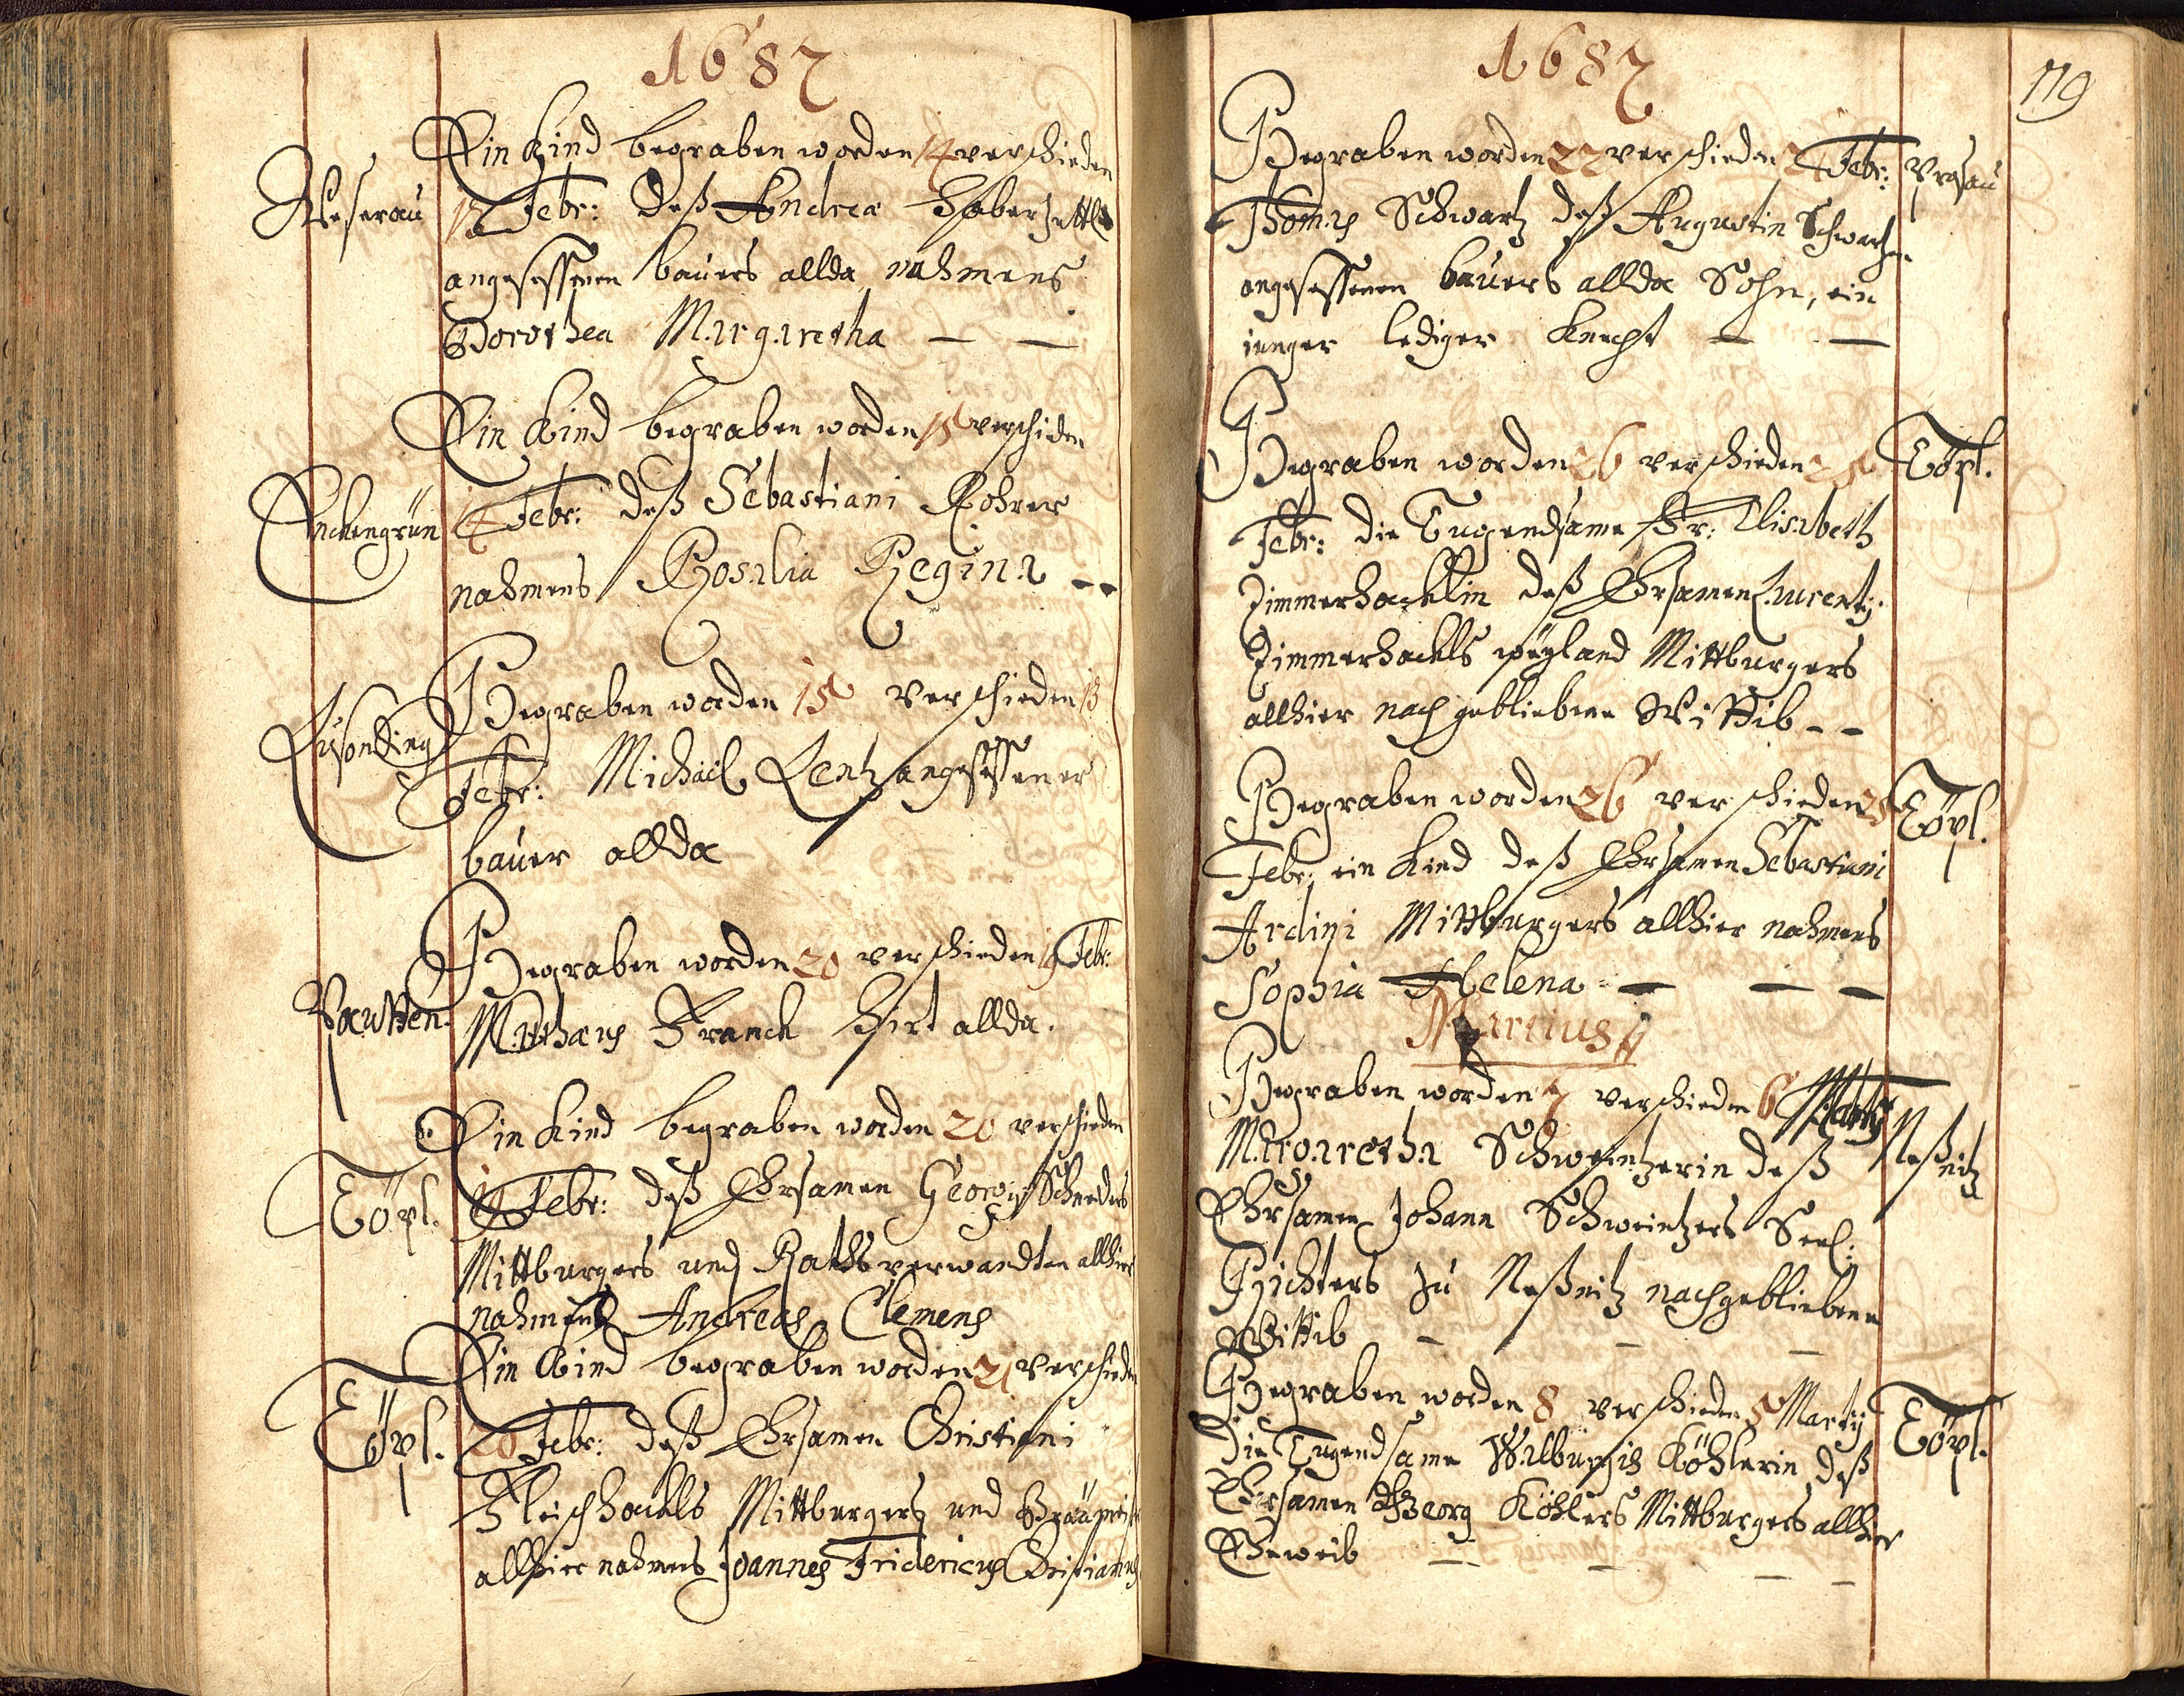 1687
Ein Kind begraben worden 14 verschieden
Neserau 12 Febr: deß Andreæ Haberzettls
angesessenen bauers allda nahmens
Dorothea Margaretha — —
Ein Kind begraben worden 15 verschiden
Enckengrün 14 Febr: deß Sebastiani Rohrer
nahmens Rosalia Regina --
Begraben worden 15 verschieden 13
Lusonding Febr: Michael Lentz angesessener
bauer allda
Begraben worden 20 verschieden 19 Febr:
Matthæus Franck Hirt allda.
Ein Kind begraben worden 20 verschieden
Töpl. 19 Febr: deß Ehrsamen Georgij Schneders
Mittburgers und Rathsverwandten allhier
nahmens Andreas Clemens
Ein Kind begraben worden 21 verschieden
Töpl. 20 Febr: deß Ehrsamen Christiani
Fleischhackls Mittburgers und
allhier nahmens Joannes Fridericus Christianus
1687
119
Begraben worden 22 verschieden 21 Febr: Ursau
Thomas Schwartz deß Augustin Schwartzen
angesessenen bauers allda Sohn, ein
junger lediger Knecht — —
Begraben worden 26 verschieden 25 Töpl.
Febr: die Tugendsame Fr: Elisabeth
Zimmerhacklin deß Ehrsamen Laurentij
Zimmerhackls weyland Mittburgers
allhier nachgebliebene Wittib --
Begraben worden 26 verschieden 25 Töpl.
Febr: ein Kind deß Ehrsamen Sebastiani
Ardini Mittburgers allhier nahmens
Sophia Helena — — —
Martius
Begraben worden 7 verschieden 6 Martij
Margaretha Schweintzerin deß Neßnitz
Ehrsamen Johann Schweintzers Seel:
Richters zu Neßnitz nachgebliebene
Wittib — — —
Begraben worden 8 verschieden 5 Martij Töpl.
die Tugendsame Walburgis Köhlerin deß
Ehrsamen Georg Köhlers Mittburgers allhier
Eheweib — — — —